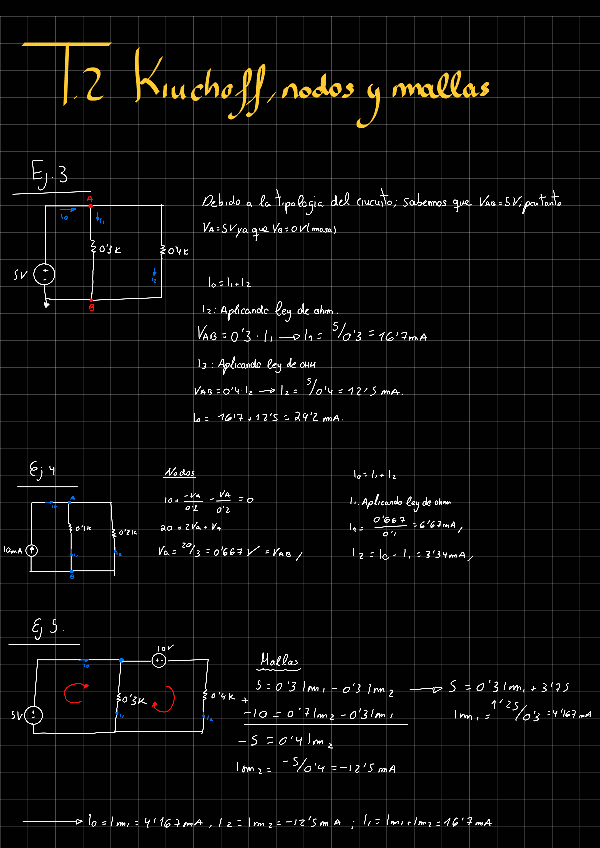 T.2 Kirchoff, nodos y mallas
Ej. 3
A
I0
I1
0'3K
0'4K
5V
I2
B
Debido a la tipologia del circuito; sabemos que VAB = 5V, por tanto
VA = 5V ya que VB = 0V (masa)
I0 = I1 + I2
I2: Aplicando ley de ohm.
VAB = 0'3 · I1 → I1 = 5/0'3 = 16'7mA
I3: Aplicando ley de OHM
VAB = 0'4 I2 → I2 = 5/0'4 = 12'5 mA.
I0 = 16'7 + 12'5 = 29'2 mA.
Ej 4
A
I0
0'1K
0'2K
10mA
I1
I2
B
Nodos
10 + -VA/0'1 - VA/0'2 = 0
20 = 2VA + VA
VA = 20/3 = 0'667 V = VAB,
I0 = I1 + I2
I1. Aplicando ley de ohm
I1 = 0'667/0'1 = 6'67mA,
I2 = I0 - I1 = 3'34mA,
Ej 5.
10V
I0
0'3K
0'4K
5V
I1
I2
Mallas
5 = 0'3 Im1 - 0'3 Im2 → 5 = 0'3 Im1 + 3'75
+
-10 = 0'7 Im2 - 0'3 Im1
Im1 = 1'25/0'3 = 4'167 mA
-5 = 0'4 Im2
Im2 = -5/0'4 = -12'5 mA
→ I0 = Im1 = 4'167mA, I2 = Im2 = -12'5 mA ; I1 = Im1-Im2 = 16'7mA